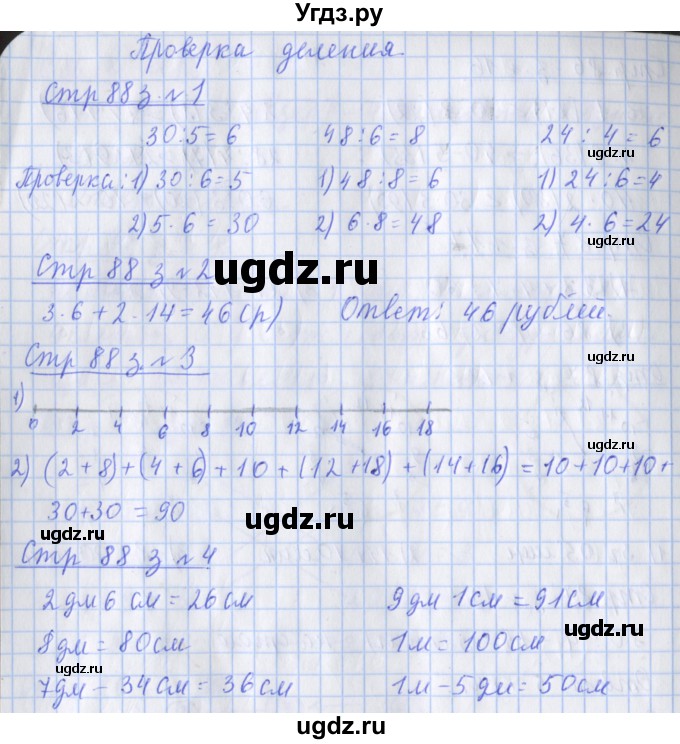 Угдз.ру
Проверка деления.
Стр 88 з. №1
30:5=6 48:6=8 24:4=6
ugdz.ru
Проверка: 1) 30:6=5 1) 48:8=6 1) 24:6=4
2) 5·6=30 2) 6·8=48 2) 4·6=24
ugdz.ru
Стр 88 з №2
ugdz.ru
3·6+2·14=46(р) Ответ: 46 рублей.
Стр 88 з. №3
ugdz.ru
1)
0 2 4 6 8 10 12 14 16 18
ugdz.ru
2) (2+8)+(4+6)+10+(12+18)+(14+16)=10+10+10+
30+30=90
ugdz.ru
ugdz.ru
Стр 88 з №4
2дм 6 см=26см 9дм 1см=91см
ugdz.ru
8дм=80см 1м=100см
ugdz.ru
7дм-34см=36см 1м-5дм=50см
ugdz.ru